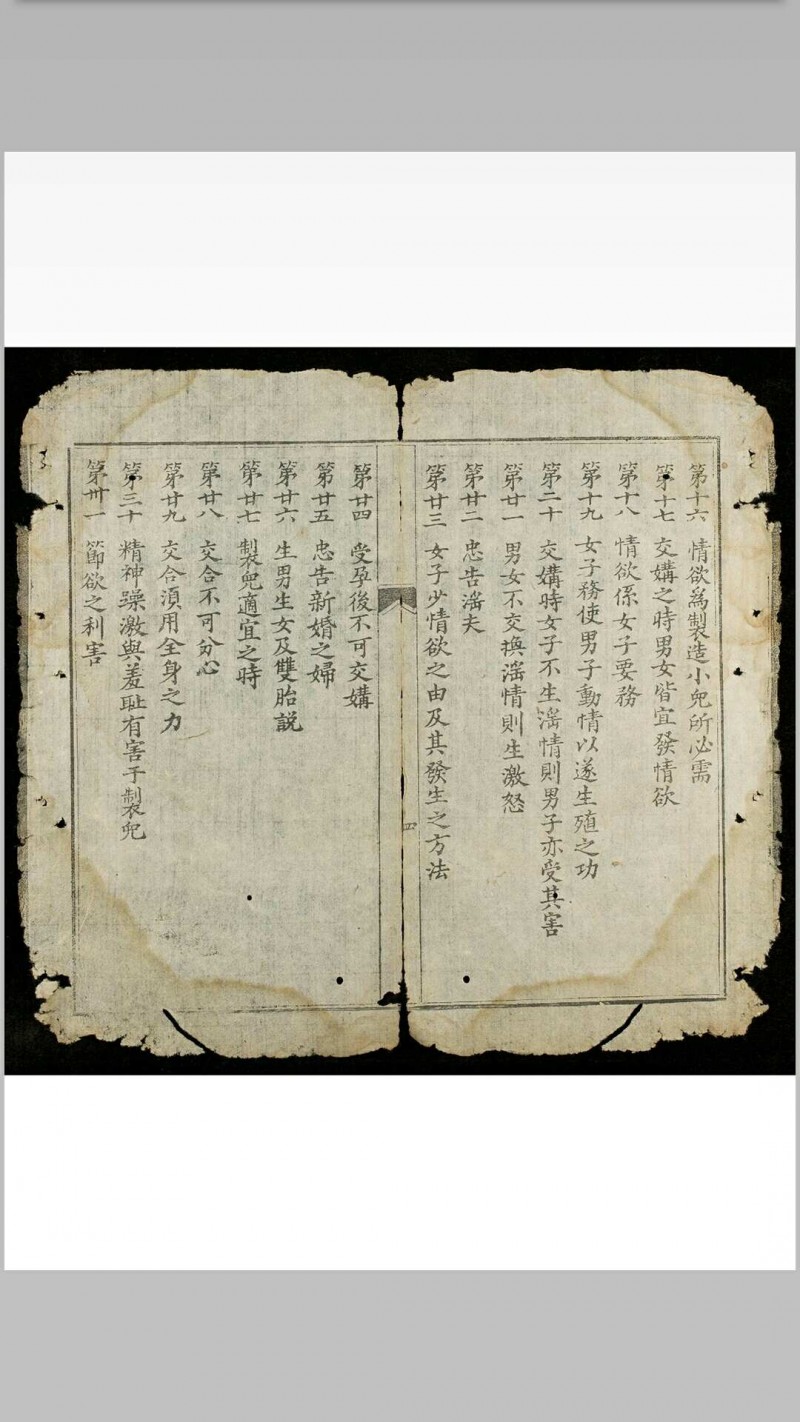 第十六　情欲爲製造小兒所必需
第十七　交媾之時男女皆宜發情欲
第十八　情欲係女子要務
第十九　女子務使男子動情以遂生殖之功
第二十　交媾時女子不生淫情則男子亦受其害
第廿一　男女不交換淫情則生激怒
第廿二　忠告淫夫
第廿三　女子少情欲之由及其發生之方法
四
第廿四　受孕後不可交媾
第廿五　忠告新婚之婦
第廿六　生男生女及雙胎説
第廿七　製兒適宜之時
第廿八　交合不可分心
第廿九　交合須用全身之力
第三十　精神躁激與羞耻有害于製兒
第卅一　節欲之利害